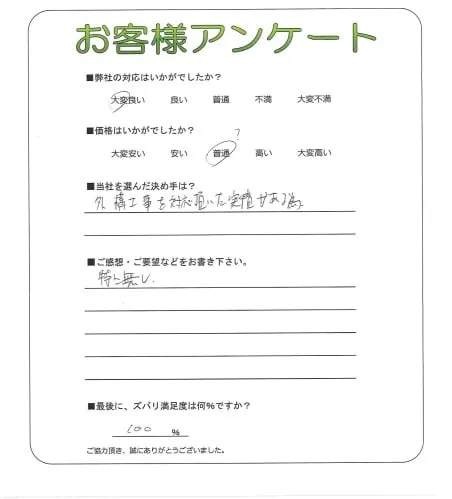 お客様アンケート
■弊社の対応はいかがでしたか?
大変良い 良い 普通 不満 大変不満
■価格はいかがでしたか?
?
大変安い 安い 普通 高い 大変高い
■当社を選んだ決め手は?
外構工事を対応頂いた実績がある為。
■ご感想・ご要望などをお書き下さい。
特に無し。
■最後に、ズバリ満足度は何%ですか?
100 %
ご協力頂き、誠にありがとうございました。